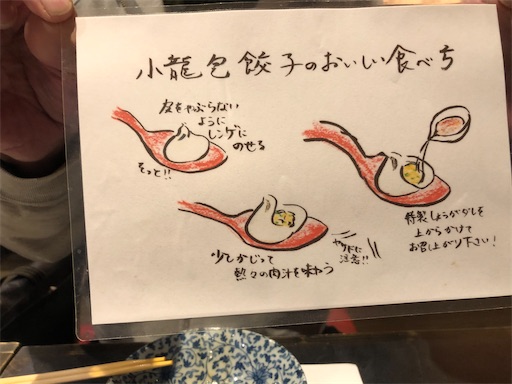 小龍包餃子のおいしい食べち
皮をやぶらない
ように
レンゲに
のせる
そっと!!
少しかじって
熱々の肉汁を味わう
ヤケドに
注意!!
特製しょうがダレを
上からかけて
お召し上がり下さい!